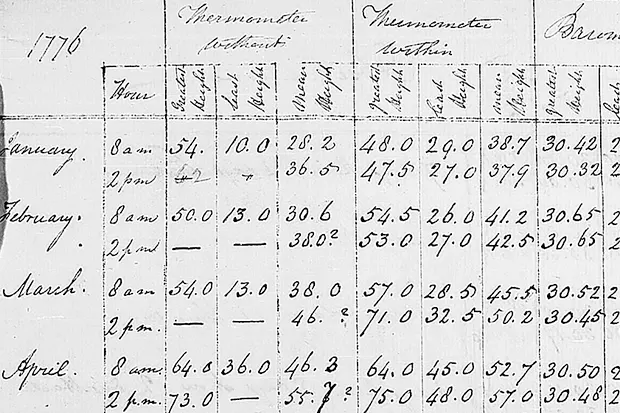 1776 Thermometer without Thermometer within Barom
Hour Greatest Height Least Height Mean Height Greatest Height Least Height Mean Height Greatest Height Least
January. 8 am 54. 10.0 28.2 48.0 29.0 38.7 30.42 2
2 pm 36.5 47.5 27.0 37.9 30.32 2
February. 8 am 50.0 13.0 30.6 54.5 26.0 41.2 30.65 2
2 pm — — 38.0? 53.0 27.0 42.5 30.65 2
March. 8 am 54.0 13.0 38.0 57.0 28.5 45.5 30.52 2
2 pm. — — 46.? 71.0 32.5 50.2 30.45 2
April. 8 am 64.0 36.0 46.3 64.0 45.0 52.7 30.50 2
2 pm. 73.0 — 55.7? 75.0 48.0 57.0 30.48 2